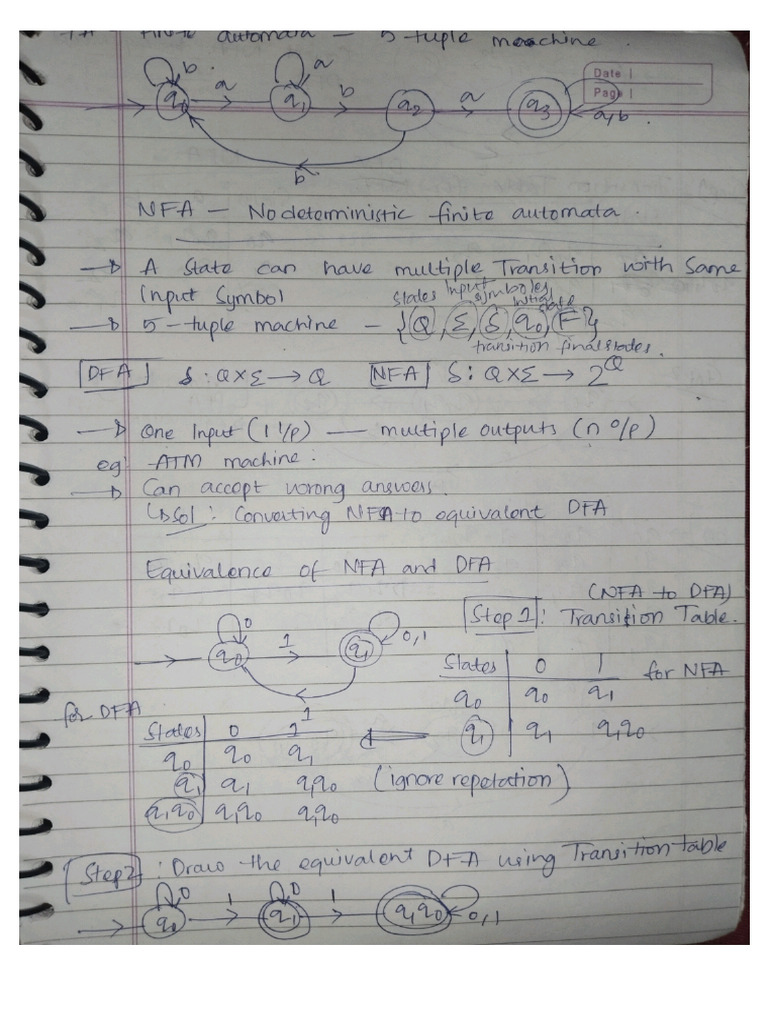 FA - Finite automata - 5-tuple machine.
Date |
Page |
b a a b a
q0 q1 q2 q3
a,b.
b
NFA - Nodeterministic finite automata.
→ A State can have multiple Transition with Same
Input Symbol
states Input symboles initial state
→ 5-tuple machine - {Q, Σ, δ, q0, F}
transition final states.
DFA δ: Q×Σ → Q NFA δ: Q×Σ → 2^Q
→ One Input (1 i/p) — multiple outputs (n o/p)
eg: ATM machine:
→ Can accept wrong answers.
↳ Sol: Converting NFA to equivalent DFA
Equivalence of NFA and DFA
(NFA to DFA)
Step 1: Transition Table.
0 1 0,1
q0 q1
1
States 0 1 for NFA
q0 q0 q1
q1 q1 q1q0
for DFA
States 0 1
q0 q0 q1
q1 q1 q1q0 (ignore repetation)
q1q0 q1q0 q1q0
Step 2: Draw the equivalent DFA using Transition table
0 1 0 1
q0 q1 q1q0 0,1